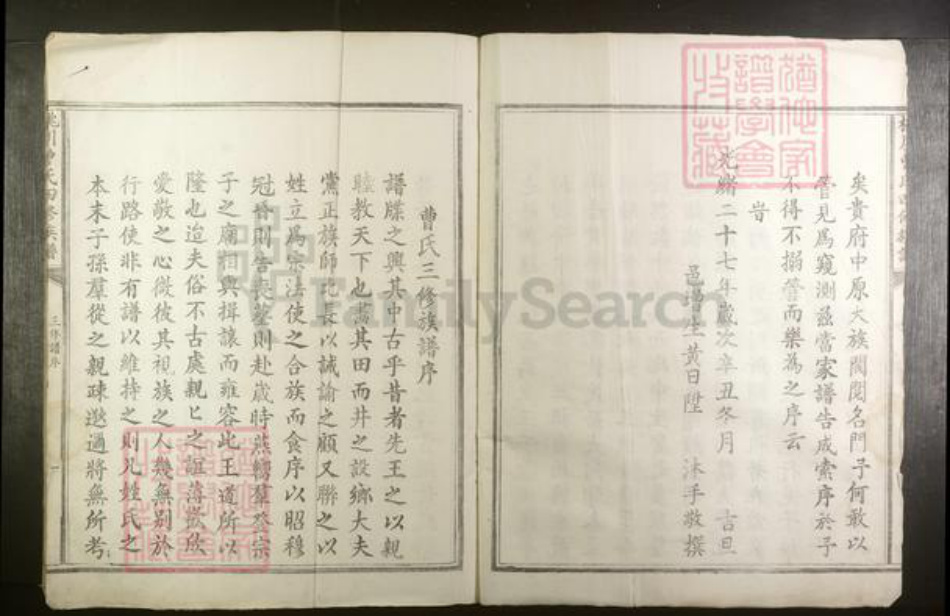 矣貴府中原大族閥閱名門予何敢以
管見為窺測茲當家譜告成索序於予
不得不搦管而樂為之序云
旹
光緒二十七年歲次辛丑冬月 吉旦
邑增生黃日陞 沐手敬撰
曹氏三修族譜序
譜牒之興其中古乎昔者先王之以親
睦教天下也畫其田而井之設鄉大夫
黨正族師比長以誡諭之顧又聯之以
姓立為宗法使之合族而食序以昭穆
冠昏則告喪葬則赴歲時燕饗羣祭宗
子之廟相與揖讓而雍容此王道所以
隆也迨夫俗不古處親匕之誼薄欲欣
愛敬之心微彼其視族之人幾無別於
行路使非有譜以維持之則凡姓氏之
本末子孫羣從之親疎邈過將無所考
三修譜序
一
猶他家
譜學會
收藏
FamilySearch